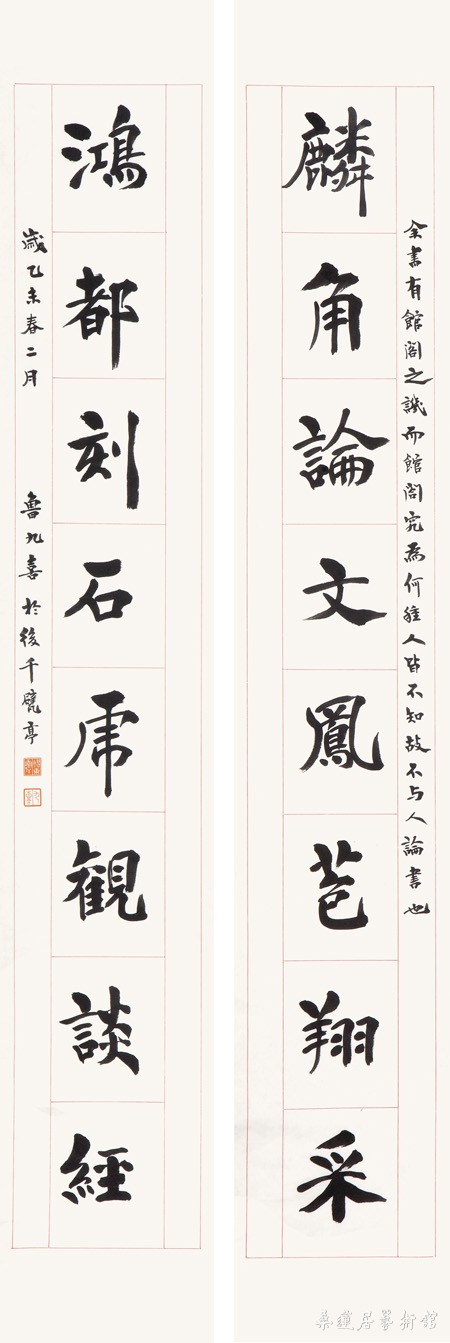 麟角論文鳳苞翔采
余書有館閣之譏而館閣究為何種人皆不知故不与人論書也
鴻都刻石虎觀談經
歲乙未春二月 魯九喜於後千甓亭
桑蓮居藝術館